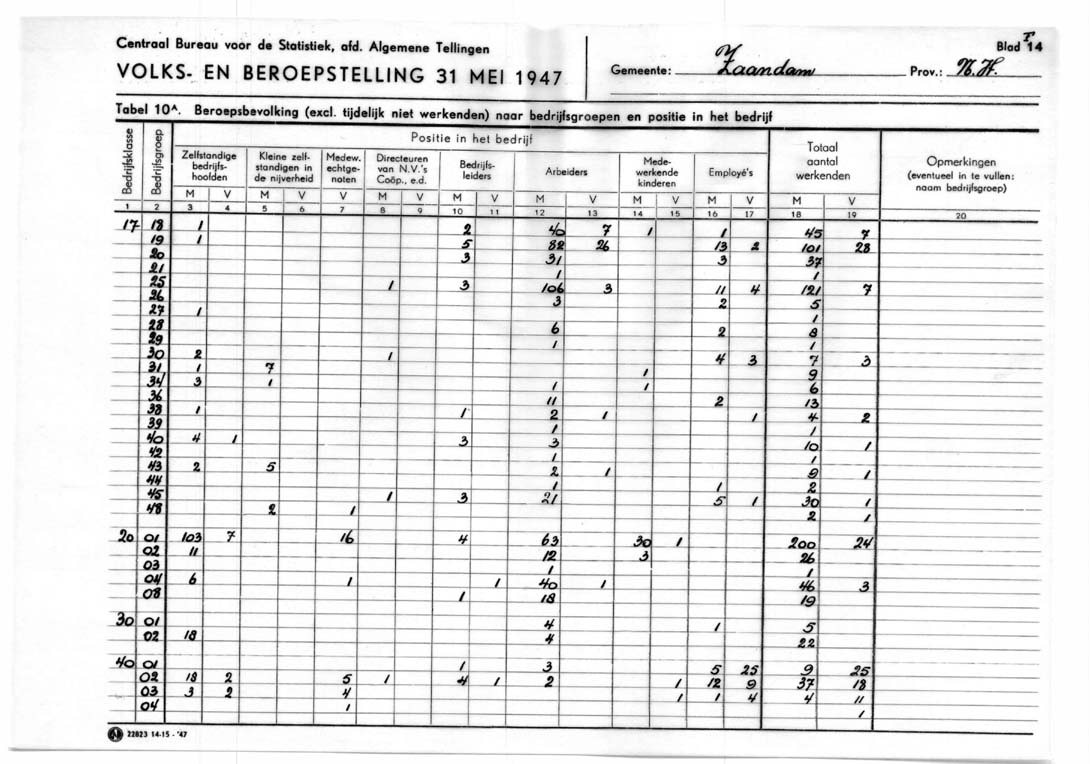 Centraal Bureau voor de Statistiek, afd. Algemene Tellingen
VOLKS- EN BEROEPSTELLING 31 MEI 1947
Gemeente: Zaandam
Prov.: N.H.
Blad F 14
Tabel 10A. Beroepsbevolking (excl. tijdelijk niet werkenden) naar bedrijfsgroepen en positie in het bedrijf
Bedrijfsklasse Bedrijfsgroep Positie in het bedrijf Totaal aantal werkenden Opmerkingen (eventueel in te vullen: naam bedrijfsgroep)
Zelfstandige bedrijfs-hoofden Kleine zelf-standigen in de nijverheid Medew. echtge-noten Directeuren van N.V.'s Coöp., e.d. Bedrijfs-leiders Arbeiders Mede-werkende kinderen Employé's
M V M V V M V M V M V M V M V M V
1 2 3 4 5 6 7 8 9 10 11 12 13 14 15 16 17 18 19 20
17 18 1 2 40 7 1 1 45 7
19 1 5 82 26 13 2 101 28
20 3 31 3 37
21 1 1
25 1 3 106 3 11 4 121 7
26 3 2 5
27 1 1
28 6 2 8
29 1 1
30 2 1 4 3 7 3
31 1 7 1 9
34 3 1 1 1 6
36 11 2 13
38 1 1 2 1 1 4 2
39 1 1
40 4 1 3 3 10 1
42 1 1
43 2 5 2 1 9 1
44 1 1 2
45 1 3 21 5 1 30 1
48 2 1 2 1
20 01 103 7 16 4 63 30 1 200 24
02 11 12 3 26
03 1 1
04 6 1 1 40 1 46 3
08 1 18 19
30 01 4 1 5
02 18 4 22
40 01 1 3 5 25 9 25
02 18 2 5 1 4 1 2 1 12 9 37 18
03 3 2 4 1 1 4 4 11
04 1 1
22823 14-15 - '47